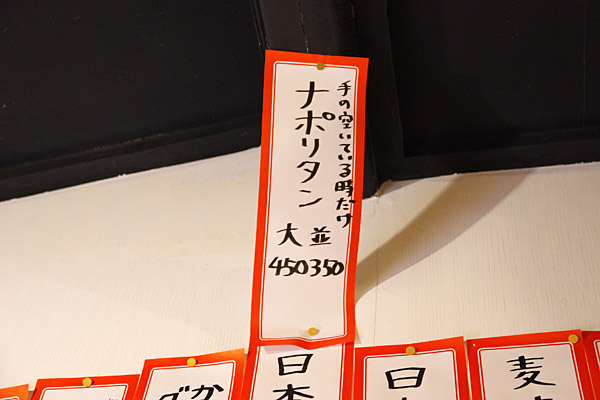 手の空いている時だけ
ナポリタン
大 並
450 350
麦
日
日本
か